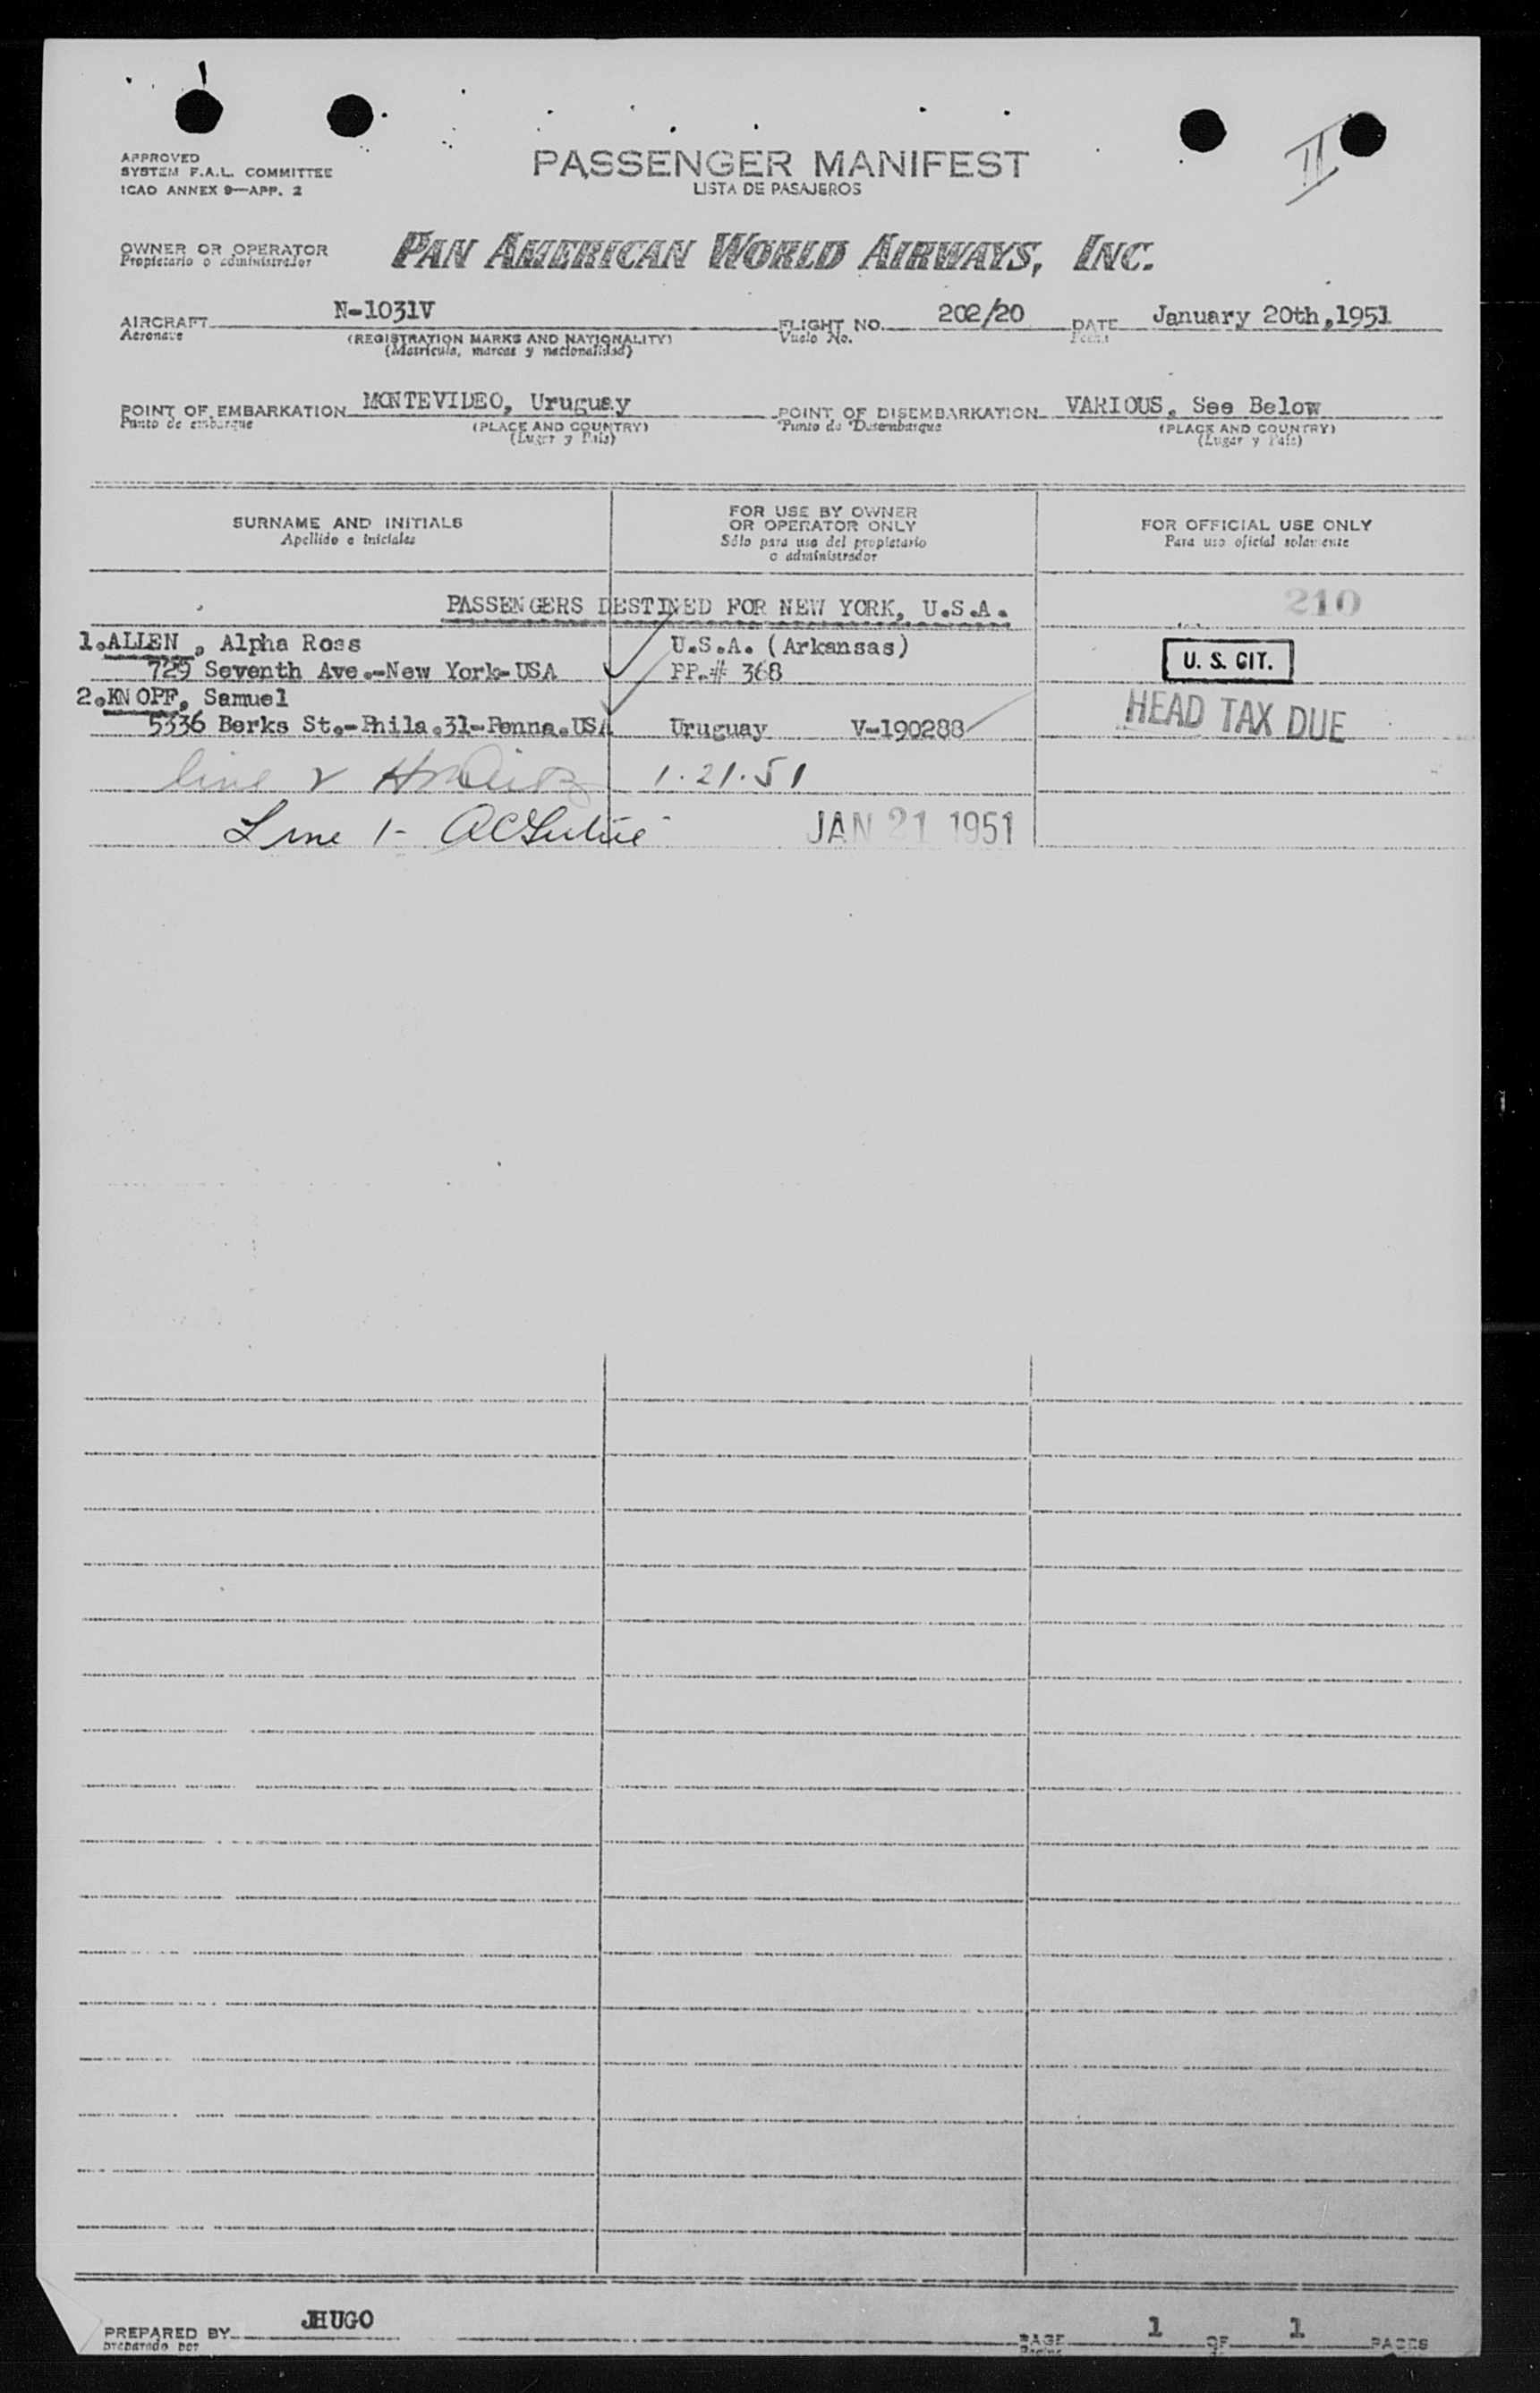 II
APPROVED
SYSTEM F.A.L. COMMITTEE
ICAO ANNEX 9—APP. 2
PASSENGER MANIFEST
LISTA DE PASAJEROS
OWNER OR OPERATOR
Propietario o administrador
PAN AMERICAN WORLD AIRWAYS, INC.
AIRCRAFT N-1031V FLIGHT NO. 202/20 DATE January 20th,1951
Aeronave (REGISTRATION MARKS AND NATIONALITY) Vuelo No. Fecha
(Matrícula, marcas y nacionalidad)
POINT OF EMBARKATION MONTEVIDEO, Uruguay POINT OF DISEMBARKATION VARIOUS, See Below
Punto de embarque (PLACE AND COUNTRY) Punto de Desembarque (PLACE AND COUNTRY)
(Lugar y País) (Lugar y País)
SURNAME AND INITIALS
Apellido e iniciales
FOR USE BY OWNER
OR OPERATOR ONLY
Sólo para uso del propietario
o administrador
FOR OFFICIAL USE ONLY
Para uso oficial solamente
PASSENGERS DESTINED FOR NEW YORK, U.S.A. 210
1.ALLEN , Alpha Ross U.S.A. (Arkansas)
729 Seventh Ave.-New York-USA PP.# 368 U. S. CIT.
2.KNOPF, Samuel
5336 Berks St.-Phila.31-Penna.USA Uruguay V-190288 HEAD TAX DUE
line 2 1.21.51
Line 1- JAN 21 1951
PREPARED BY JHUGO PAGE 1 OF 1 PAGES
preparado por